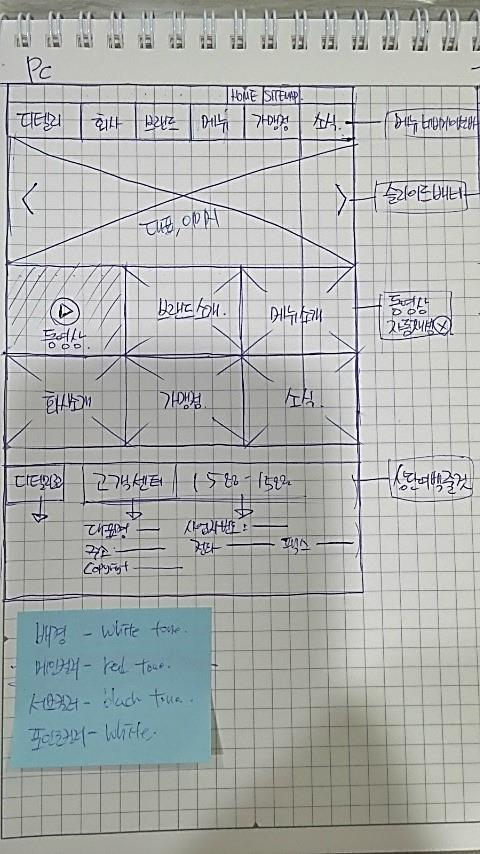 PC
HOME SITEMAP
디텔리 회사 브랜드 메뉴 가맹점 소식.
슬라이드배너
대표, 이미지
동영상. 브랜드소개. 메뉴소개
동영상
자동재생 X
회사소개 가맹점 소식.
고객센터 1522-1522
상단여백줄것
대표명
사업자번호:
주소
전화 팩스
Copyright
배경 - White tone.
메인컬러 - red tone.
서브컬러 - black tone.
포인트컬러 - White.